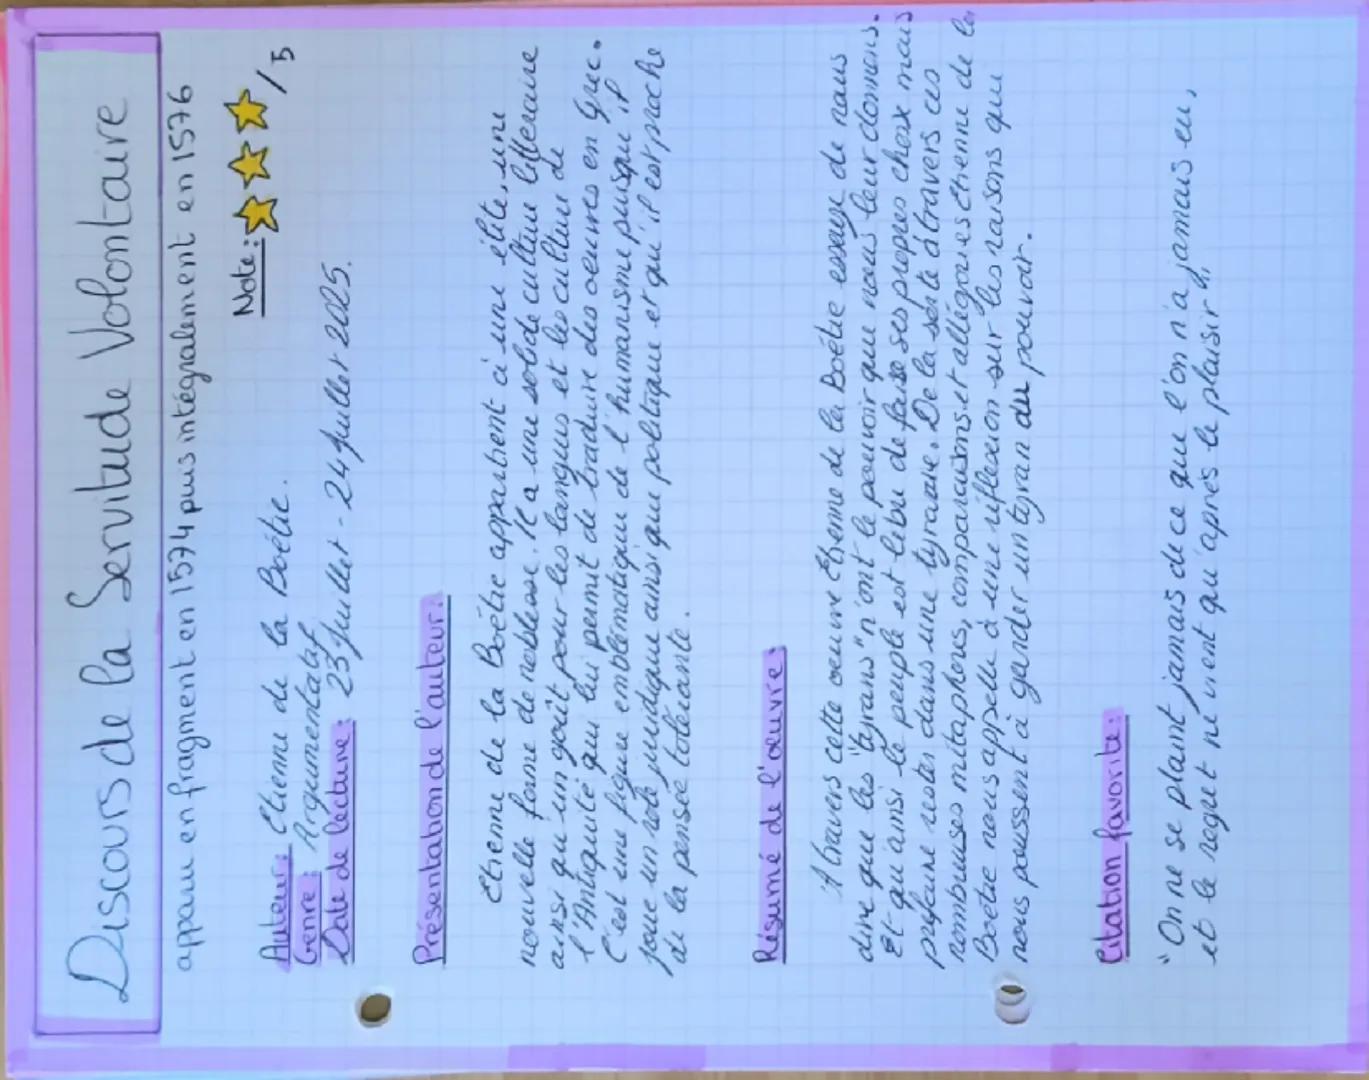 Discours de la Servitude Volontaire
apparu en fragment en 1574 puis intégralement en 1576
Note: /5
Auteur: Etienne de la Boétie.
Genre: Argumentatif
Date de lecture: 23 juillet - 24 juillet 2025.
Présentation de l'auteur:
Etienne de la Boétie appartient à une élite, une
nouvelle forme de noblesse. Il a une solide culture litteraire
ainsi qu'un goût pour les langues et les culture de
l'Antiquité qui lui permit de traduire des oeuvres en grec.
C'est une figure emblématique de l'humanisme puisqu'il
joue un role juridique ainsi que politique et qu'il est proche
de la pensée tolérante.
Résumé de l'oeuvre:
A travers cette oeuvre Etienne de la Boétie essaye de nous
dire que les "tyrans" n'ont le pouvoir que nous leur donnons.
Et qu'ainsi le peuple est libre de faire ses propres choix mais
préfère rester dans une tyranie. De la sorte à travers ces
nombreuses métaphores, comparaisons et allégories Etienne de la
Boétie nous appelle à une réflexion sur les raisons qui
nous poussent à garder un tyran au pouvoir.
Citation favorite:
"On ne se plaint jamais de ce que l'on n'a jamais eu,
et le regret ne vient qu'après le plaisir"